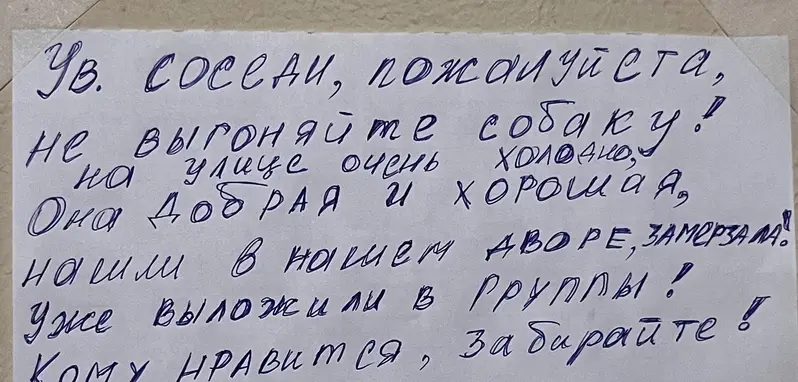 Ув. соседи, пожалуйста,
не выгоняйте собаку!
на улице очень холодно,
Она добрая и хорошая,
нашли в нашем дворе, замерзала!
Уже выложили в группы!
Кому нравится, забирайте!